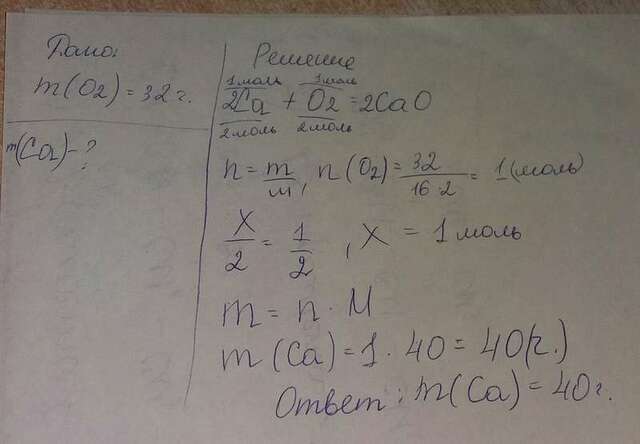 Дано:
m(O2) = 32 г.
m(Ca) - ?
Решение
1 моль 1 моль
2Ca + O2 = 2CaO
2 моль 2 моль
n = m/м, n(O2) = 32/16·2 = 1 (моль)
X/2 = 1/2, X = 1 моль
m = n · M
m(Ca) = 1 · 40 = 40(г.)
Ответ: m(Ca) = 40 г.